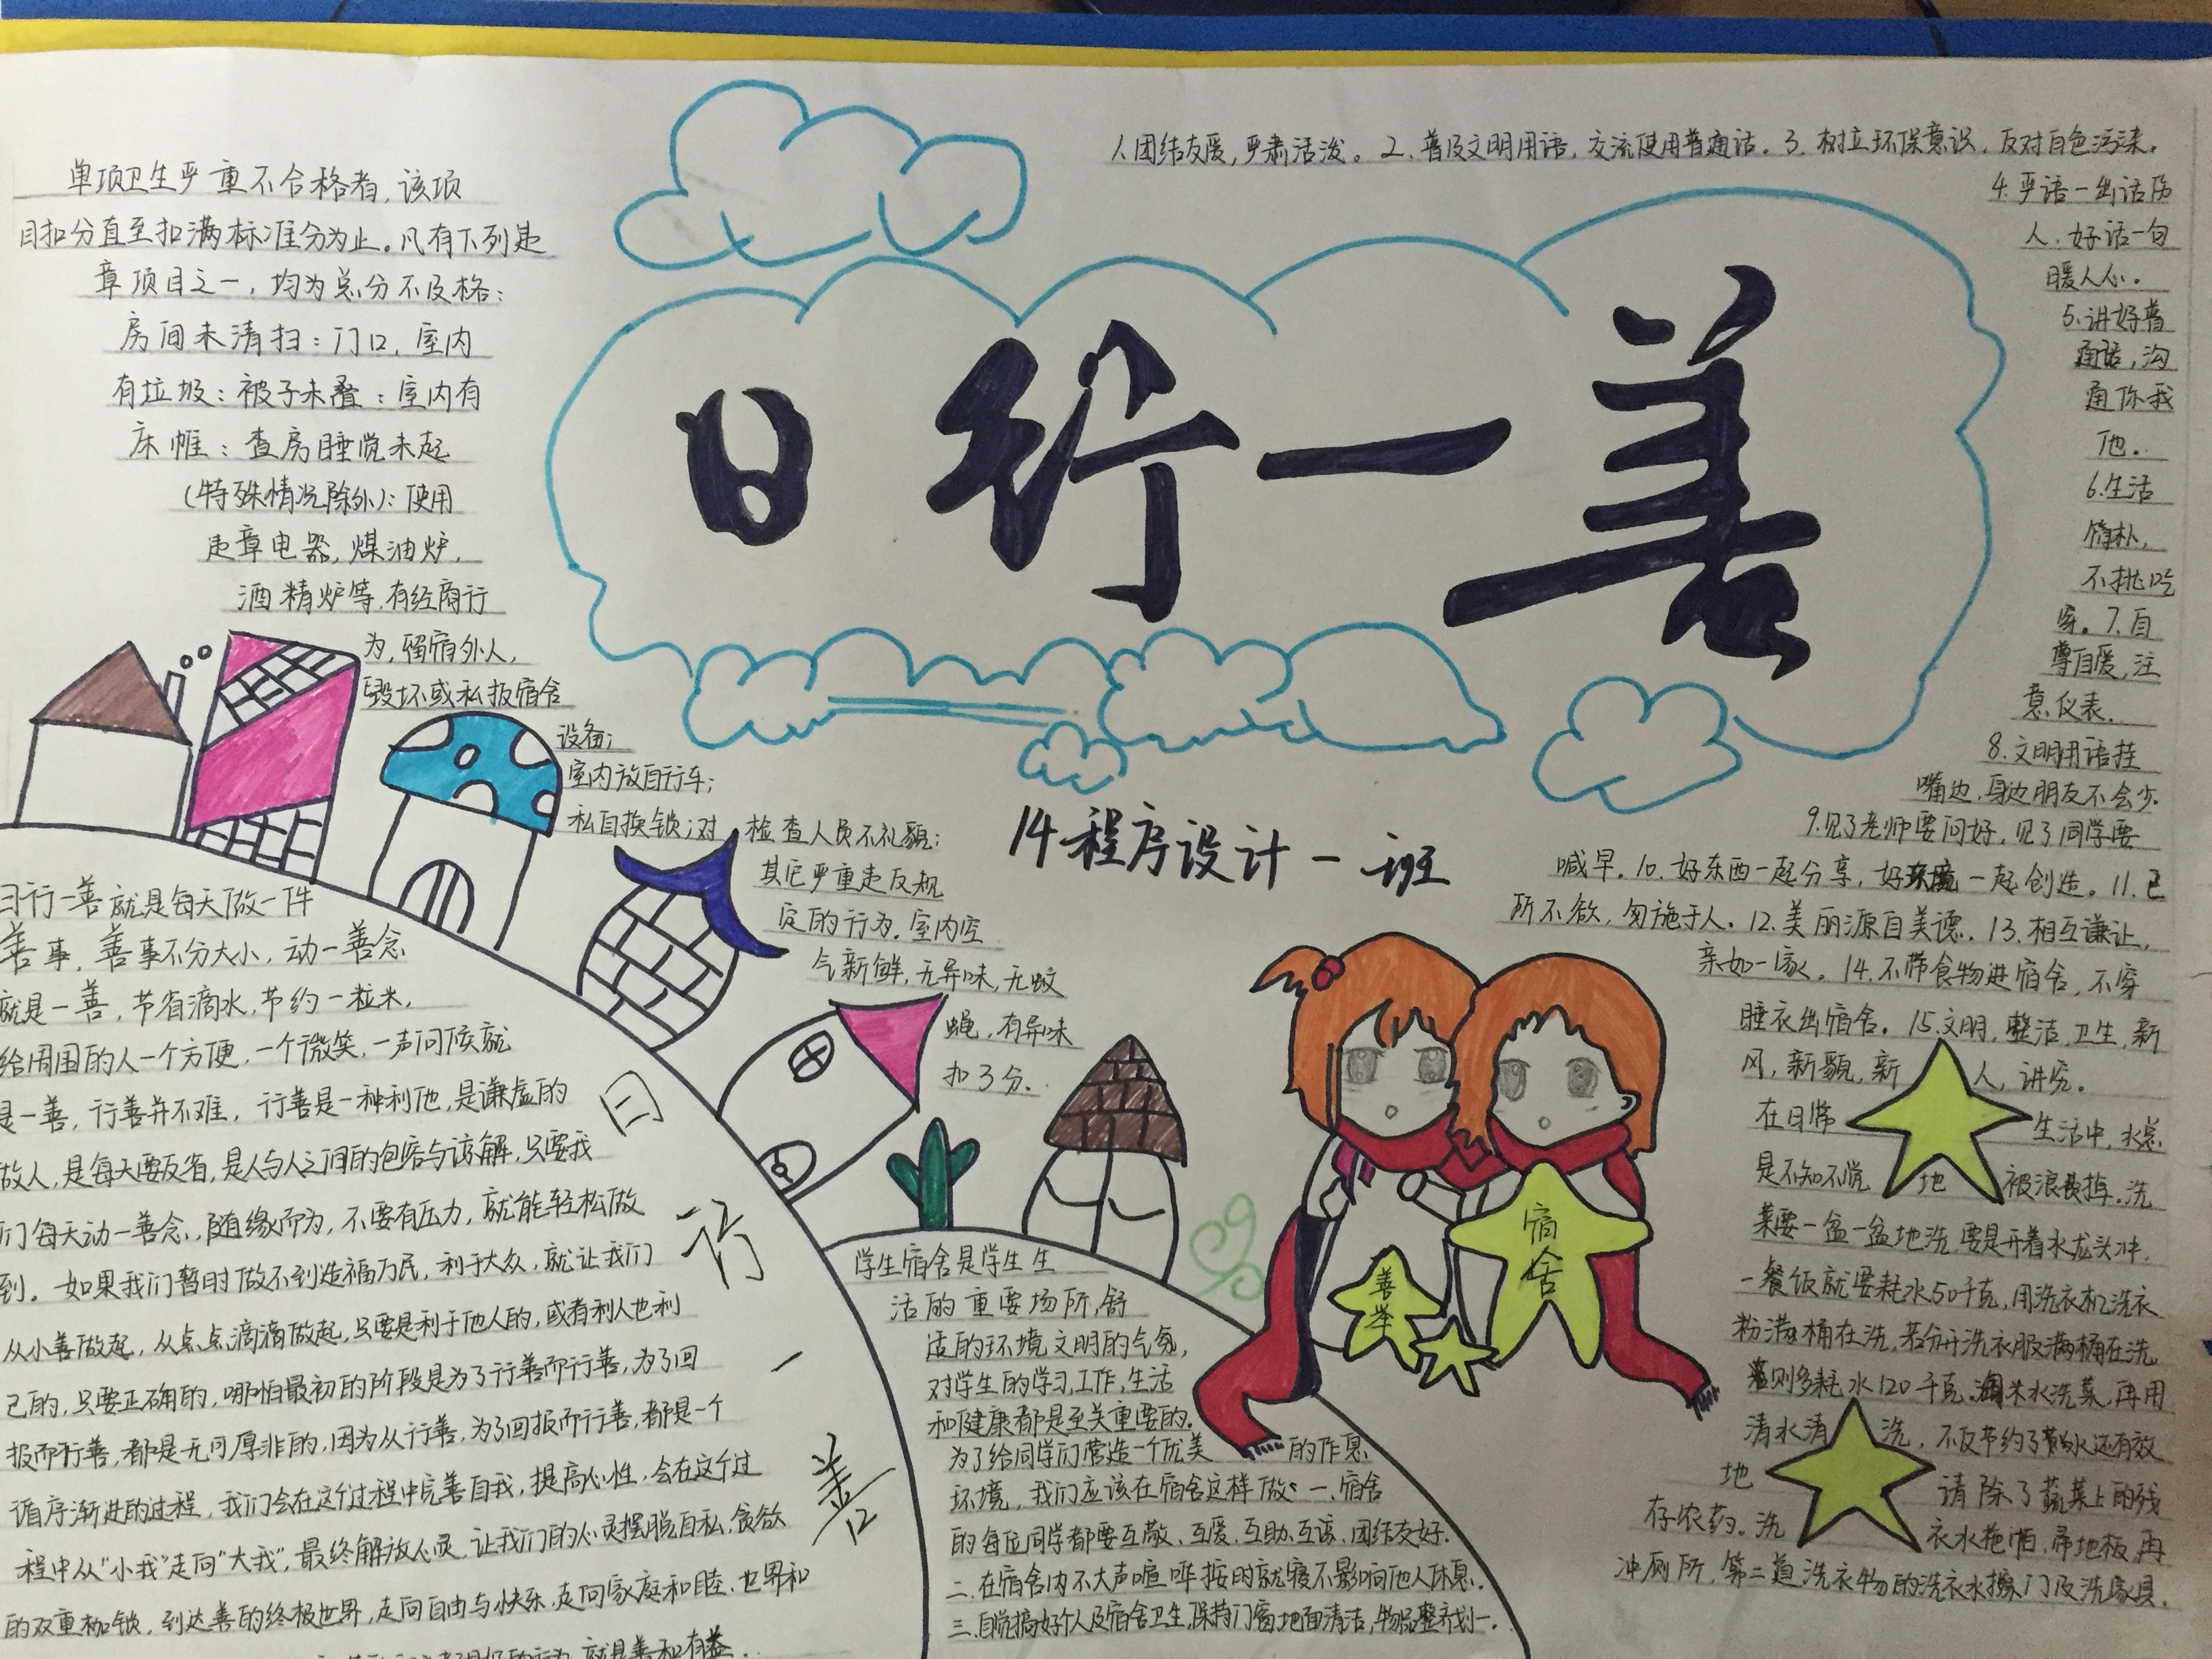 日行一善
14程序设计一班
单项卫生严重不合格者,该项
目扣分直至扣满标准分为止。凡有下列违
章项目之一,均为总分不及格:
房间未清扫:门口,室内
有垃圾:被子未叠:室内有
床帷:查房睡觉未起
(特殊情况除外):使用
违章电器,煤油炉,
酒精炉等,有经商行
为,留宿外人,
毁坏或私拆宿舍
设备;
室内放自行车;
私自换锁;对检查人员不礼貌;
其它严重违反规
定的行为。室内空
气新鲜,无异味,无蚊
蝇,有异味
扣3分.
人团结友爱,严肃活泼。2、普及文明用语,交流使用普通话。3、树立环保意识,反对白色污染。
4.恶语一出话伤
人,好话一句
暖人心。
5.讲好普
通话,沟
通你我
他。
6.生活
俭朴,
不挑吃
穿。7.自
尊自爱,注
意仪表.
8.文明用语挂
嘴边,身边朋友不会少.
9.见了老师要问好,见了同学要
喊早。10.好东西一起分享,好环境一起创造。11.己
所不欲,勿施于人。12.美丽源自美德.13.相互谦让,
亲如一家。14.不带食物进宿舍,不穿
睡衣出宿舍。15.文明,整洁,卫生,新
风,新貌,新人,讲究。
在日常生活中,水总
是不知不觉地被浪费掉.洗
菜要一盆一盆地洗,要是开着水龙头冲,
一餐饭就要耗水50千克,用洗衣机洗衣
粉满桶在洗,若分开洗衣服满桶在洗
则多耗水120千克.淘米水洗菜,再用
清水清洗,不仅节约了水还有效
地清除了蔬菜上的残
存农药。洗衣水拖帕,帚地板,再
冲厕所,第二道洗衣物的洗衣水擦门及洗家具.
日行一善就是每天做一件
善事,善事不分大小,动一善念
就是一善,节省滴水,节约一粒米,
给周围的人一个方便,一个微笑,一声问候就
是一善,行善并不难,行善是一种利他,是谦虚的
做人,是每天要反省,是人与人之间的包容与谅解,只要我
们每天动一善念,随缘而为,不要有压力,就能轻松做
到。如果我们暂时做不到造福万民,利于大众,就让我们
从小善做起,从点点滴滴做起,只要是利于他人的,或者利人也利
己的,只要正确的,哪怕最初的阶段是为了行善而行善,为了回
报而行善,都是无可厚非的,因为从行善,为了回报而行善,都是一个
循序渐进的过程,我们会在这个过程中完善自我,提高心性,会在这个过
程中从"小我"走向"大我",最终解放心灵,让我们的心灵摆脱自私,贪欲
的双重枷锁,到达善的终极世界,走向自由与快乐,走向家庭和睦,世界和
就是善和有益.
日
行
一
善
学生宿舍是学生生
活的重要场所,舒
适的环境文明的气氛,
对学生的学习,工作,生活
和健康都是至关重要的.
为了给同学们营造一个优美的作息
环境,我们应该在宿舍这样做:一、宿舍
的每位同学都要互敬、互爱、互助、互谅,团结友好.
二.在宿舍内不大声喧哗按时就寝不影响他人休息.
三.自觉搞好个人及宿舍卫生,保持门窗地面清洁,物品整齐划一.
善举
宿舍